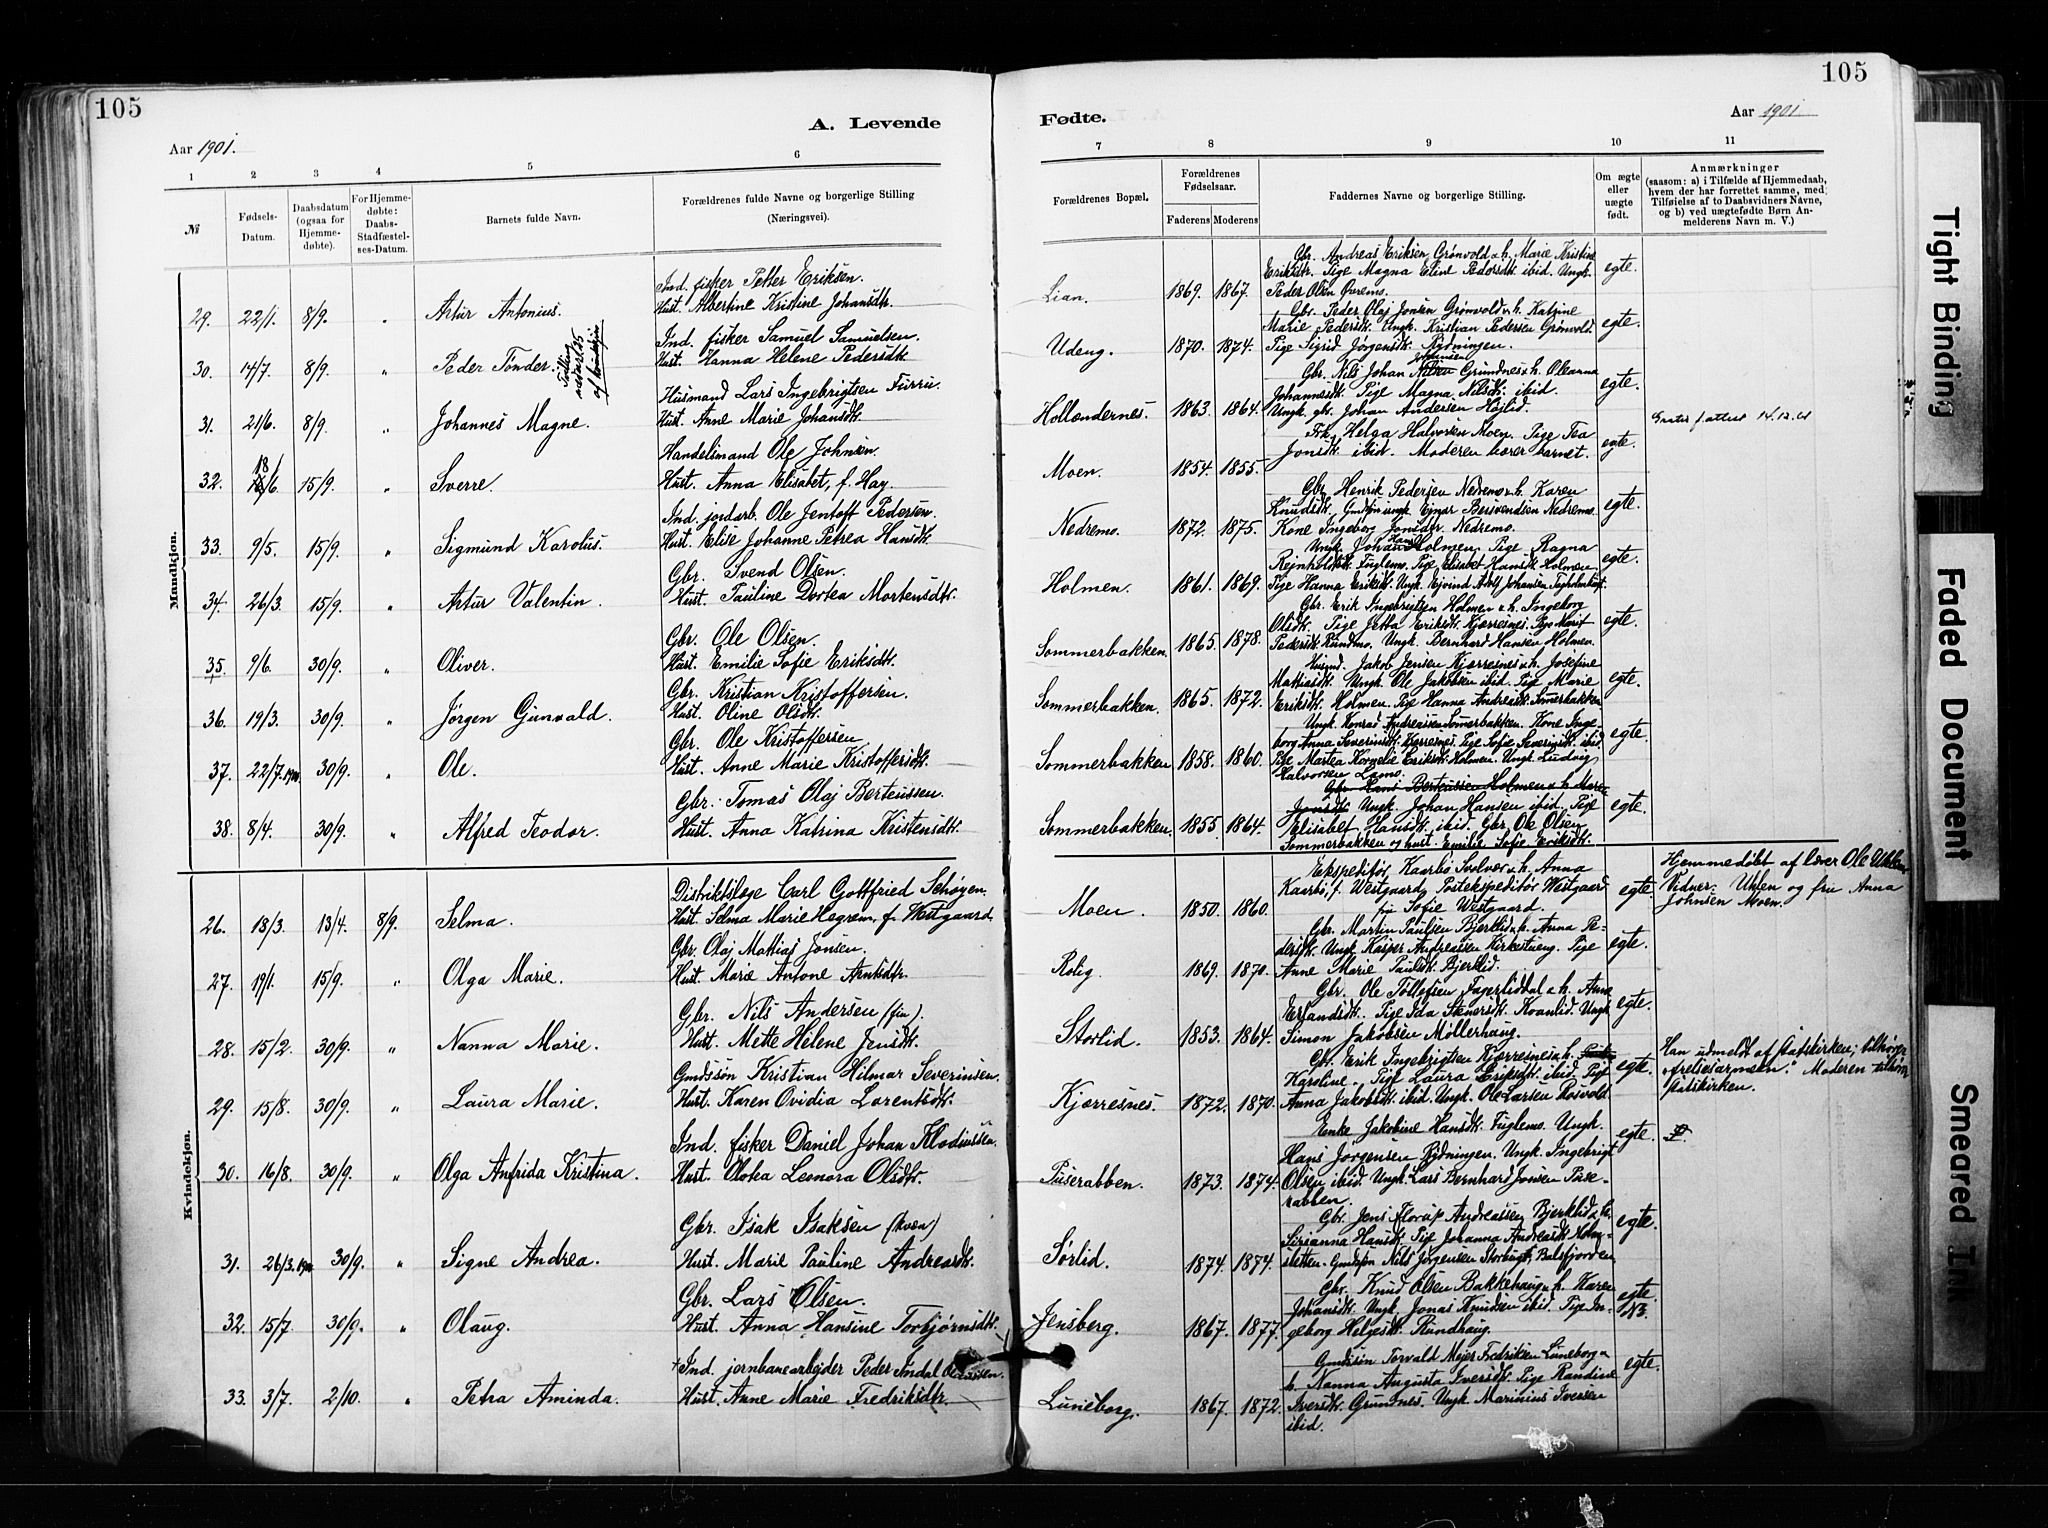 105
A. Levende
Aar 1901.
1 2 3 4 5 6
№
Fødsels-Datum.
Daabsdatum (ogsaa for Hjemme-døbte).
For Hjemme-døbte: Daabs-Stadfæstel-ses-Datum.
Barnets fulde Navn.
Forældrenes fulde Navne og borgerlige Stilling (Næringsvei).
Mandkjøn.
Ind. fisker Petter Eriksen.
29. 22/1. 8/9. " Artur Antonius. Hust. Albertine Kristine Johansdtr.
Ind. fisker Samuel Samuelsen.
30. 14/7. 8/9. " Peder Tönder. Hust. Hanna Helene Pedersdtr.
Tvilling nederst 25 af kvindekjøn
Husmand Lars Ingebrigtsen Furru
31. 21/6. 8/9. " Johannes Magne. Hust. Anne Marie Johansdtr.
Handelsmand Ole Johnsen.
32. 18/6. 15/9. " Sverre. Hust. Anna Elisabet, f. Hay.
Ind. jordarb. Ole Jentoft Pedersen.
33. 9/5. 15/9. " Sigmund Karolus. Hust. Elise Johanne Petrea Hansdtr.
Gbr. Svend Olsen.
34. 26/3. 15/9. " Artur Valentin. Hust. Pauline Dortea Mortensdtr.
Gbr. Ole Olsen.
35. 9/6. 30/9. " Oliver. Hust. Emilie Sofie Eriksdtr.
Gbr. Kristian Kristoffersen.
36. 19/3. 30/9. " Jørgen Gunvald. Hust. Oline Olsdtr.
Gbr. Ole Kristoffersen
37. 22/7.1900 30/9. " Ole. Hust. Anne Marie Kristoffersdtr.
Gbr. Tomas Olaj Berteussen.
38. 8/4. 30/9. " Alfred Teodor. Hust. Anna Katrina Kristensdtr.
Kvindekjøn.
Distriktslæge Carl Gottfried Schøyen.
26. 18/3. 13/4. 8/9. Selma. Hust. Selma Marie Hegrem, f. Westgaard
Gbr. Olaj Mattias Jonsen.
27. 19/1. 15/9. " Olga Marie. Hust. Marie Antone Arntsdtr.
Gbr. Nils Andersen (fin).
28. 15/2. 30/9. " Nanna Marie. Hust. Mette Helene Jensdtr.
Gmdssön Kristian Hilmar Severinsen.
29. 15/8. 30/9. " Laura Marie. Hust. Karen Ovidia Lorentsdtr.
Ind. fisker Daniel Johan Klodiussen.
30. 16/8. 30/9. " Olga Anfrida Kristina. Hust. Olotea Leonora Olsdtr.
Gbr. Isak Isaksen (kvæn)
31. 26/3.1900 30/9. " Signe Andrea. Hust. Marie Pauline Andreasdtr.
Gbr. Lars Olsen.
32. 15/7. 30/9. " Olaug. Hust. Anna Hansine Torbjørnsdtr.
Ind. jernbanearbejder Peder Andal
33. 3/7. 2/10. " Petra Aminda. Hust. Anne Marie Fredriksdtr.
105
Fødte.
Aar 1901
7 8 9 10 11
Forældrenes Bopæl.
Forældrenes Fødselsaar.
Faderens Moderens
Faddernes Navne og borgerlige Stilling.
Om ægte eller uægte født.
Anmærkninger
(saasom: a) i Tilfælde af Hjemmedaab, hvem der har forrettet samme, med Tilføielse af to Daabsvidners Navne, og b) ved uægtefødte Børn An-melderens Navn m. V.)
Gbr. Andreas Eriksen Grønvold o.h. Marie Kristine
Eriksdtr. Pige Magna Eline Pedersdtr. ibid. Ungk. egte.
Lian. 1869. 1867. Peder Olsen Øvermo.
Gbr. Peder Olaj Jonsen Grønvold o.h. Katrine
Marie Pedersdtr. Ungk. Kristian Pedersen Grønvold. egte.
Udeng. 1870. 1874. Pige Sigrid Jørgensdtr. Rydningen.
Gbr. Nils Johan Johansen Grundnes o.h. Oleanna
Johannesdtr. Pige Magna Nilsdtr. ibid. egte.
Hollændernes. 1863. 1864. Ungk. gbr. Johan Andersen Højlid. Gratis f. attest 14.12.61
Frk. Helga Halvorsen Moen. Pige Tea
Jonsdtr. ibid. Moderen bærer barnet. egte.
Moen. 1854. 1855.
Gbr. Henrik Pedersen Nedremo o.h. Karen
Knudsdtr. Gmdssön ungk. Ejnar Bersvendsen Nedremo. egte.
Nedremo. 1872. 1875. Kone Ingeborg Jonsdtr. Nedremo.
Ungk. Johan Hansen Holmen. Pige Ragna
Rejnholdtdtr. Fuglemo. Pige Elisabet Hansdtr. Holmen. egte.
Holmen. 1861. 1869. Pige Hanna Eriksdtr. Ungk. Ejvind Adolf Johansen
Gbr. Erik Ingebrigtsen Holmen o.h. Ingeborg
Olsdtr. Pige Jetta Eriksdtr. Kjærresnes. Pige Marit egte.
Sommerbakken. 1865. 1878. Pedersdtr. Rundmo. Ungk. Bernhard Hansen Holmen.
Husmd. Jakob Jensen Kjærresnes o.h. Josefine
Mathiasdtr. Ungk. Ole Jakobsen ibid. Pige Marie egte.
Sommerbakken. 1865. 1872. Eriksdtr. Holmen. Pige Hanna Andreasdtr. Sommerbakken
Ungk. Konrad Andreassen Sommerbakken. Kone Inge-
borg Anna Severinsdtr. Kjærresnes. Pige Sofie Severinsdtr. ibid. egte.
Sommerbakken 1858. 1860. Pige Martea Kornelie Eriksdtr. Holmen. Ungk. Ludvig
Halvorsen Lamo.
Gbr. Hans Berteussen Holmen o.h. Maren
Jonsdtr. Ungk. Johan Hansen ibid. Pige egte.
Sommerbakken. 1855. 1864. Elisabet Hansdtr. ibid. Gbr. Ole Olsen
Sommerbakken og hust. Emilie Sofie Eriksdtr.
Ekspeditør Kaarbø Svolvær o.h. Anna Hjemmedøbt af lærer Ole Uhlen
Kaarbø, f. Westgaard, Postekspeditør Westgaard egte. Vidner: Uhlen og fru Anna
Moen. 1850. 1860. fru Sofie Westgaard. Johnsen Moen.
Gbr. Martin Paulsen Bjerklid o.h. Anna Pe-
dersdtr. Ungk. Kasper Andreassen Kirkestueng. Pige egte.
Rolig. 1869. 1870. Anne Marie Paulsdtr. Bjerklid.
Gbr. Ole Tollefsen Fagerliddal o.h. Anne
Erlandsdtr. Pige Ida Steinersdtr. Kvanlid. Ungk. egte.
Storlid. 1853. 1864. Simon Jakobsen Møllerhaug.
Gbr. Erik Ingebrigtsen Kjærresnes o.h. Han udmeldt af statskirken; tilhører
Karoline. Pige Laura Eriksdtr. ibid. Pige egte. "Frelsesarmeen." Moderen tilhører
Kjærresnes. 1872. 1870. Anna Jakobsdtr. ibid. Ungk. Ole Larsen Rosvold. statskirken.
Enke Jakobine Hansdtr. Fuglemo. Ungk. egte.
Hans Jørgensen Rydningen. Ungk. Ingebrigt
Puserabben. 1873. 1874. Olsen ibid. Ungk. Lars Bernhard Jonsen Puse-
rabben.
Gbr. Jens Florup Andreassen Bjerklid o.h. egte.
Sirianna Hansdtr. Pige Johanna Andreasdtr. Holm-
Sørlid. 1874. 1874. sletten. Gmdssøn Nils Jørgensen Storbugt, Balsfjorden
Gbr. Knud Olsen Bakkehaug o.h. Karen egte.
Johansdtr. Ungk. Jonas Knudsen ibid. Pige In- NB.
Jensberg. 1867. 1877. geborg Helgesdtr. Rundhaug.
Gmdssøn Torvald Mejer Fredriksen Luneborg o. egte.
h. Nanna Augusta Iversdtr. Pige Randine
Luneborg. 1867. 1872. Iversdtr. Grundnes. Ungk. Marinius Iversen
ibid.
Tight Binding
Faded Document
Smeared Ink